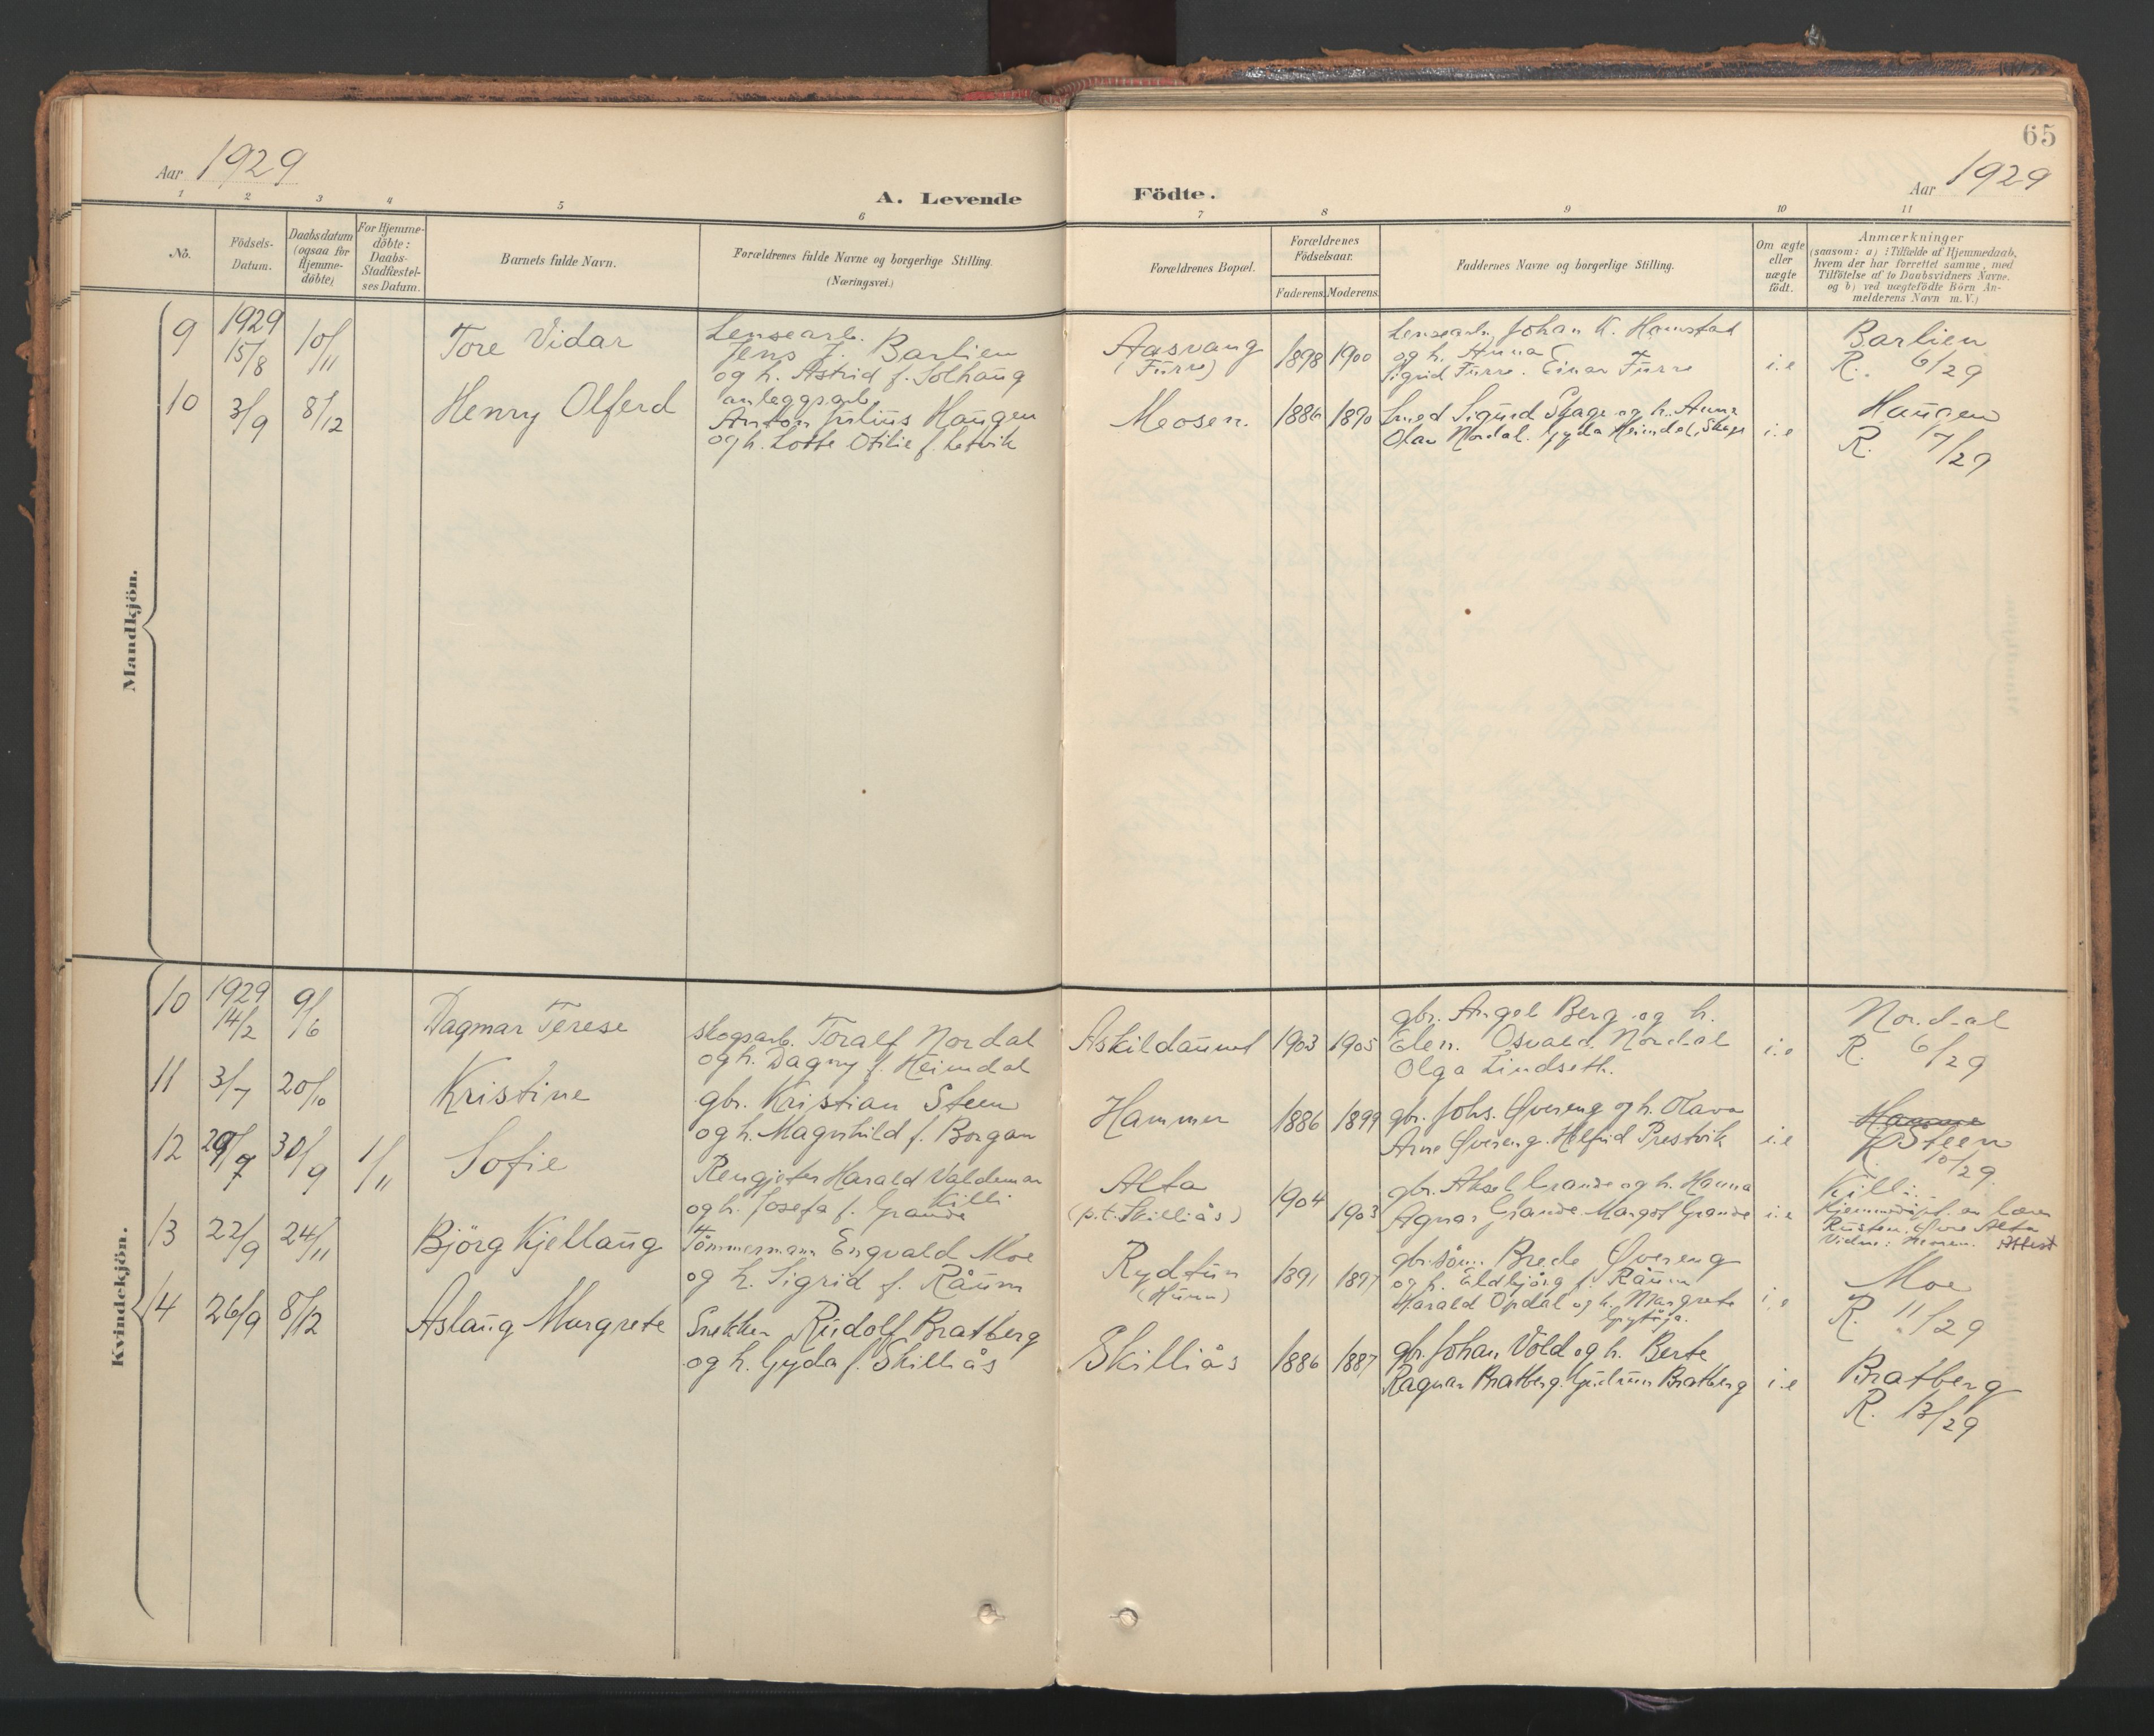 65
Aar 1929
Aar 1929
A. Levende Födte.
1 2 3 4 5 6 7 8 9 10 11
No.
Födsels-
Datum.
Daabsdatum
(ogsaa for
Hjemme-
döbte)
For Hjemme-
döbte:
Daabs-
Stadfæstel-
ses Datum.
Barnets fulde Navn.
Forældrenes fulde Navne og borgerlige Stilling.
(Næringsvei.)
Forældrenes Bopæl.
Forældrenes
Födselsaar.
Faderens. Moderens.
Faddernes Navne og borgerlige Stilling.
Om ægte
eller
uægte
födt.
Anmærkninger
(saasom: a) i Tilfælde af Hjemmedaab,
hvem der har forrettet samme, med
Tilföielse af to Daabsvidners Navne.
og b) ved uægtefödte Börn An-
melderens Navn m.V.)
Mandkjön.
9
1929
15/8
10/11
Tore Vidar
Lensearb.
Jens J. Barlien
og h. Astrid f. Solhaug
Aasvang
(Furre)
1898 1900
Lensearb. Johan K. Hamstad
og h. Anna
Sigrid Furre. Einar Furre
i.e
Barlien
R. 6/29
10
3/9
8/12
Henry Olferd
anleggsarb.
Anton Julius Haugen
og h. Lotte Otilie f. Letvik
Meosen.
1886 1890
Smed Sigurd Skage og h. Anna
Olav Nordal. Gyda Heimdal, Skage
i.e
Haugen
R. 7/29
Kvindekjön.
10
1929
14/2
9/6
Dagmar Terese
skogsarb. Toralf Nordal
og h. Dagny f. Heimdal
Askildaunet
1903 1905
gbr. Angel Berg og h.
Elen. Osvald Nordal
Olga Lindseth.
i.e
Nordal
R. 6/29
11
3/7
20/10
Kristine
gbr. Kristian Steen
og h. Magnhild f. Borgan
Hammer
1886 1899
gbr. Johs. Øvereng og h. Olava
Arne Øvereng. Helfrid Prestvik
i.e
Hamme
Steen
R. 10/29
12
29/7
30/9
1/11
Sofie
Rengjeter Harald Valdemar
Killi
og h. Josefa f. Grande
Alta
(p.t. Skilliås)
1904 1903
gbr. Aksel Grande og h. Hanna
Agnar Grande. Margot Grande
i.e
Killi.
Hjemmedøpt av lærer
Rusten. Øvre Alta
13
22/9
24/11
Björg Kjellaug
Tömmermann Engvald Moe
og h. Sigrid f. Råum
Rydtun
(Hunn)
1891 1897
gbr.sönn Brede Øvereng
og h. Eldbjörg f. Råum
Harald Opdal og h. Margrete
i.e
Moe
R. 11/29
14
26/9
8/12
Aslaug Margrete
Snekker Rudolf Bratberg
og h. Gyda f. Skilliås
Skilliås
1886 1887
gbr. Johan Vold og h. Berte
Ragnar Bratberg. Gudrun Bratberg
i.e
Bratberg
R. 13/29